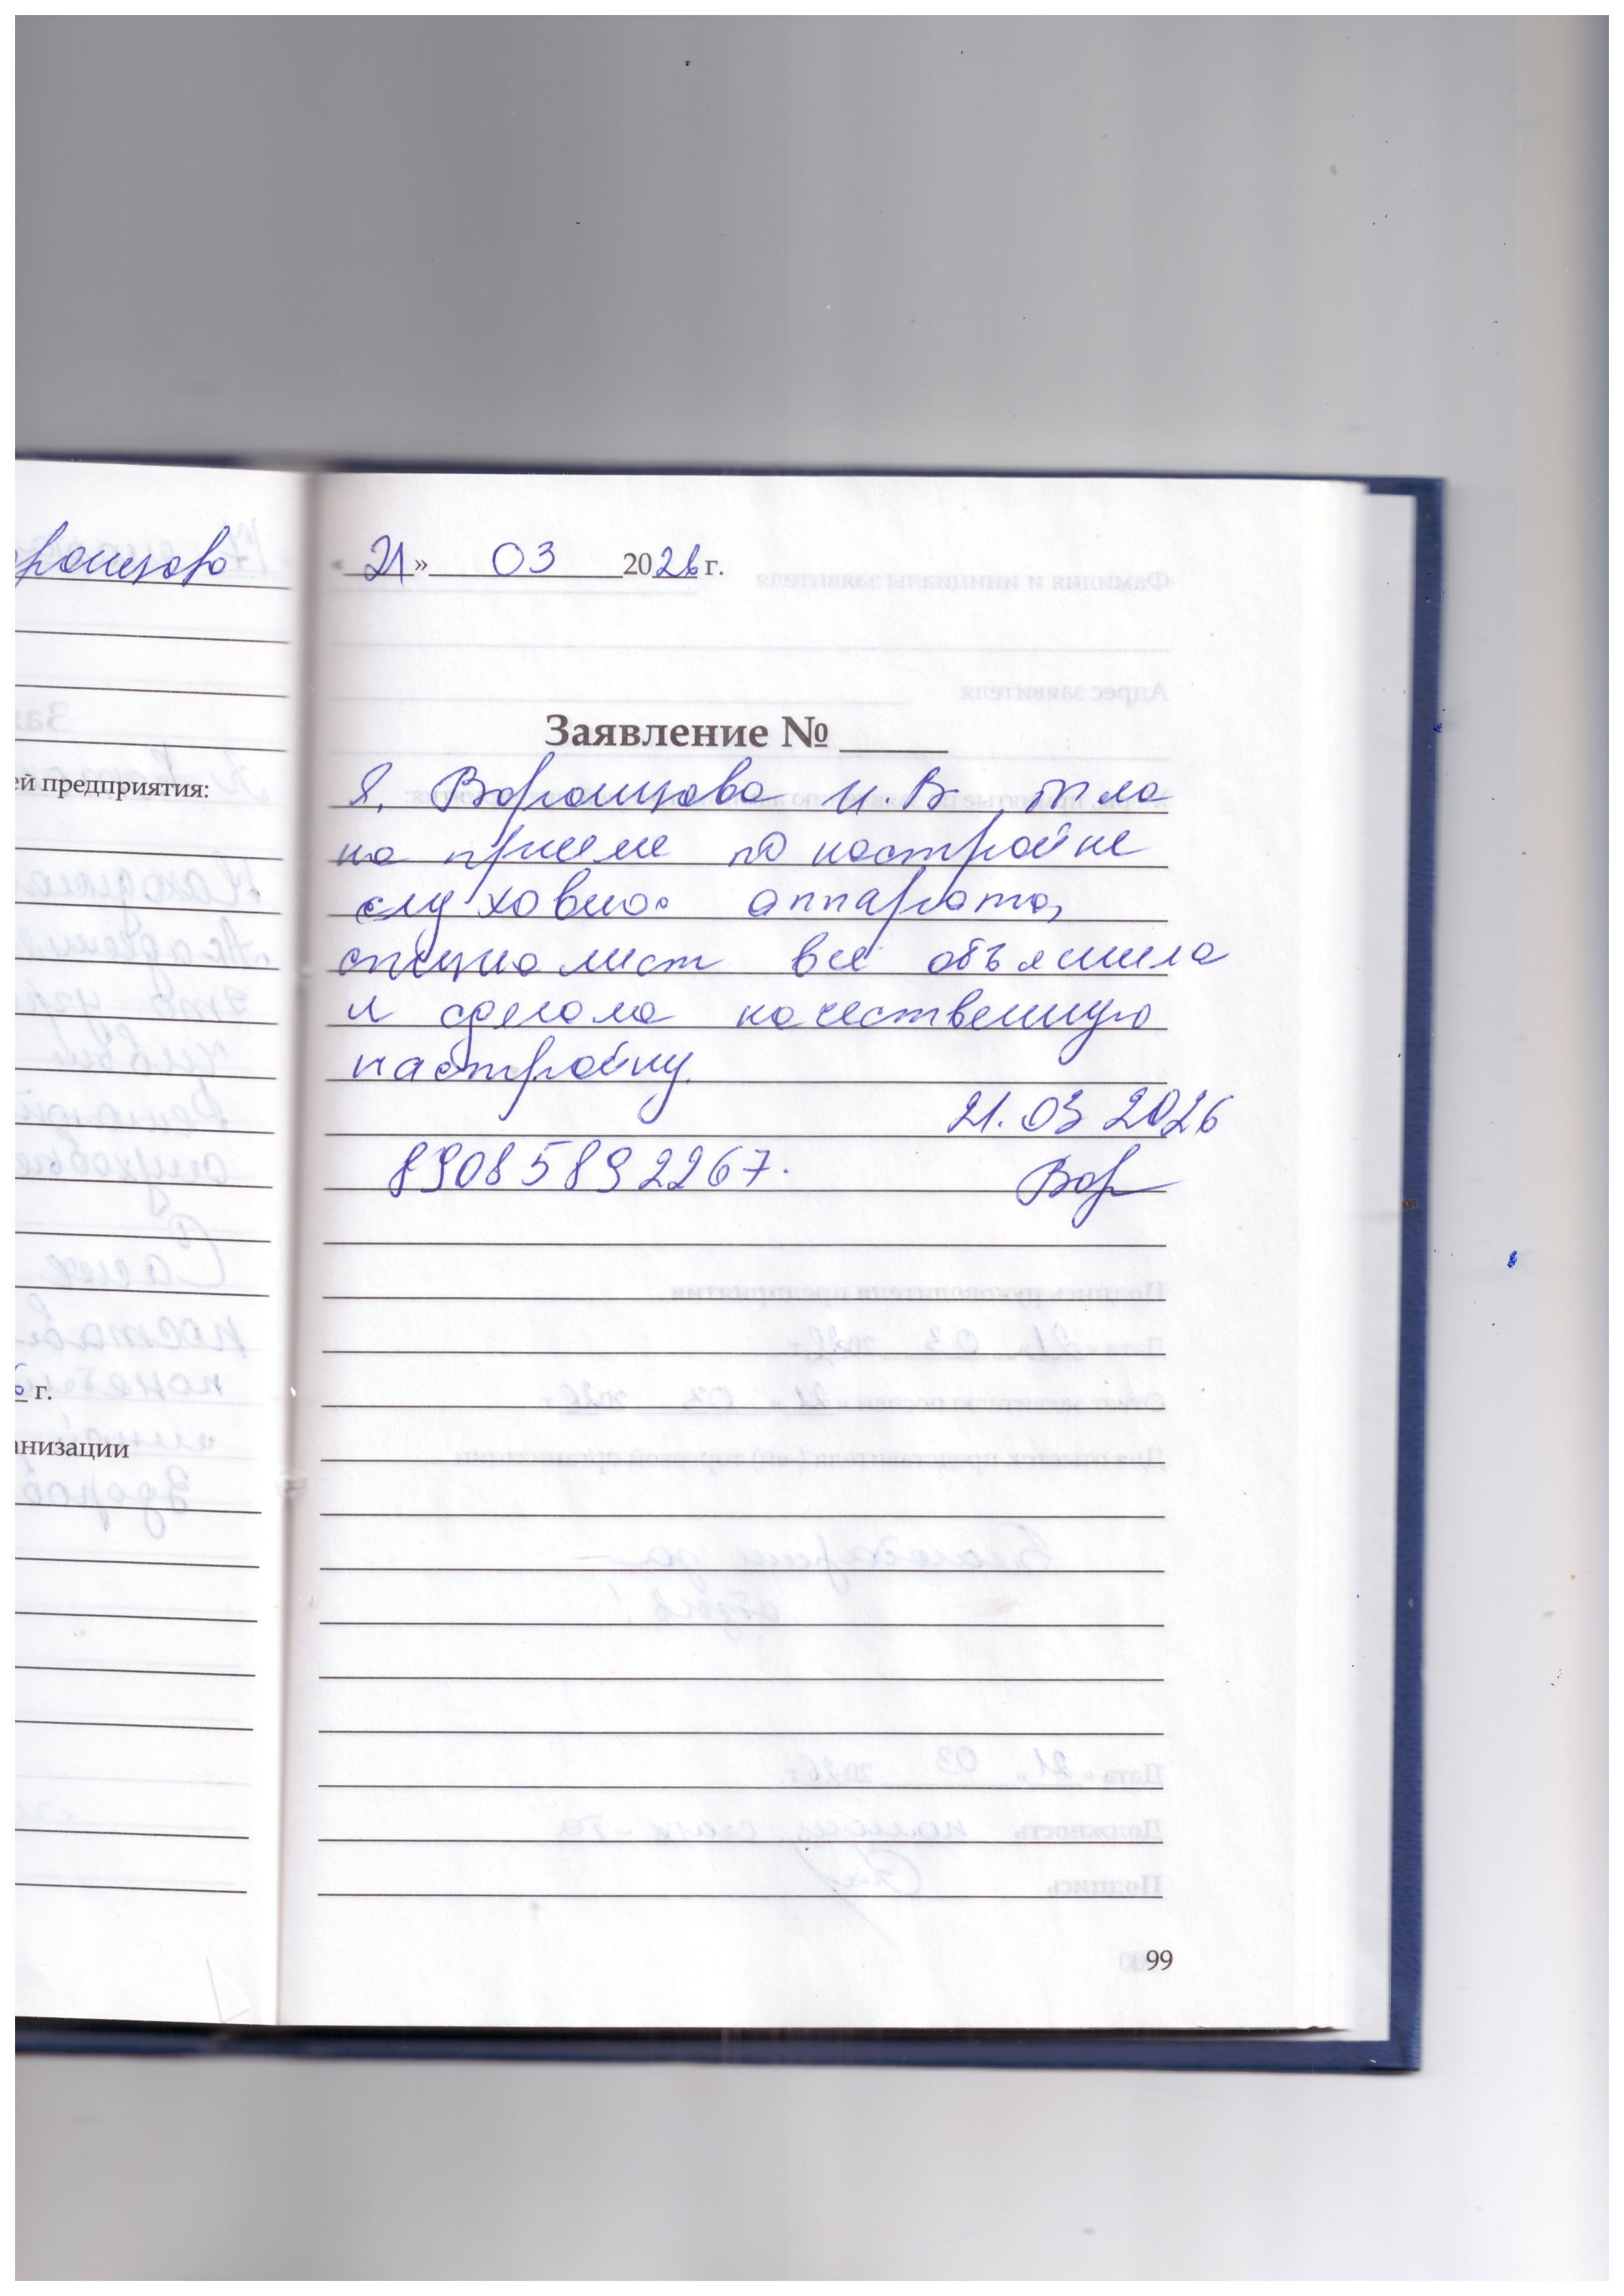 «21» 03 2026 г.
Заявление №
Я, Воронцова И.В была
на приеме по настройке
слухового аппарата,
специалист все объяснила
и сделала качественную
настройку.
21.03 2026
89085892267.
Вор
99
ей предприятия:
г.
анизации